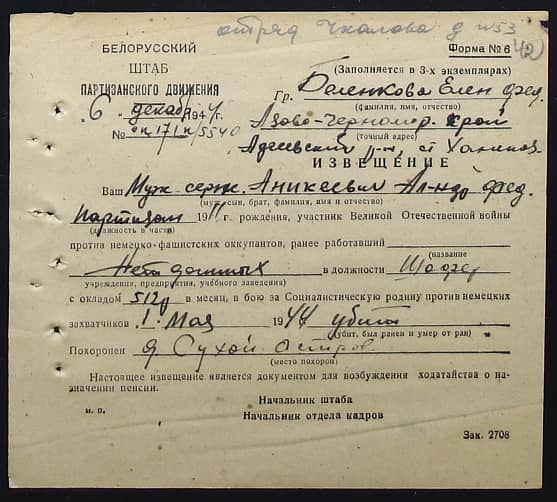 отряд Чкалова д №53
42
БЕЛОРУССКИЙ
ШТАБ
ПАРТИЗАНСКОГО ДВИЖЕНИЯ
Форма № 6
(Заполняется в 3-х экземплярах)
6 декабр 1944г.
№ 5540
Гр. Баленкова Елен Фед.
(фамилия, имя, отчество)
Азово-Черномор. край
(точный адрес)
р-н, ст
ИЗВЕЩЕНИЕ
Ваш Муж серж. Аникеевич Ал-ндр Фед.
(муж, сын, брат, фамилия, имя и отчество)
партизан 1911 г. рождения, участник Великой Отечественной войны
(должность в части)
против немецко-фашистских оккупантов, ранее работавший
(название
Нет данных в должности Шофер
учреждения, предприятия, учебного заведения)
с окладом 512р в месяц, в бою за Социалистическую родину против немецких
захватчиков 1 Мая 1944 убит
(убит, был ранен и умер от ран)
Похоронен д. Сухой Остров
(место похорон)
Настоящее извещение является документом для возбуждения ходатайства о на-
значении пенсии.
Начальник штаба
м. п.
Начальник отдела кадров
Зак. 2708